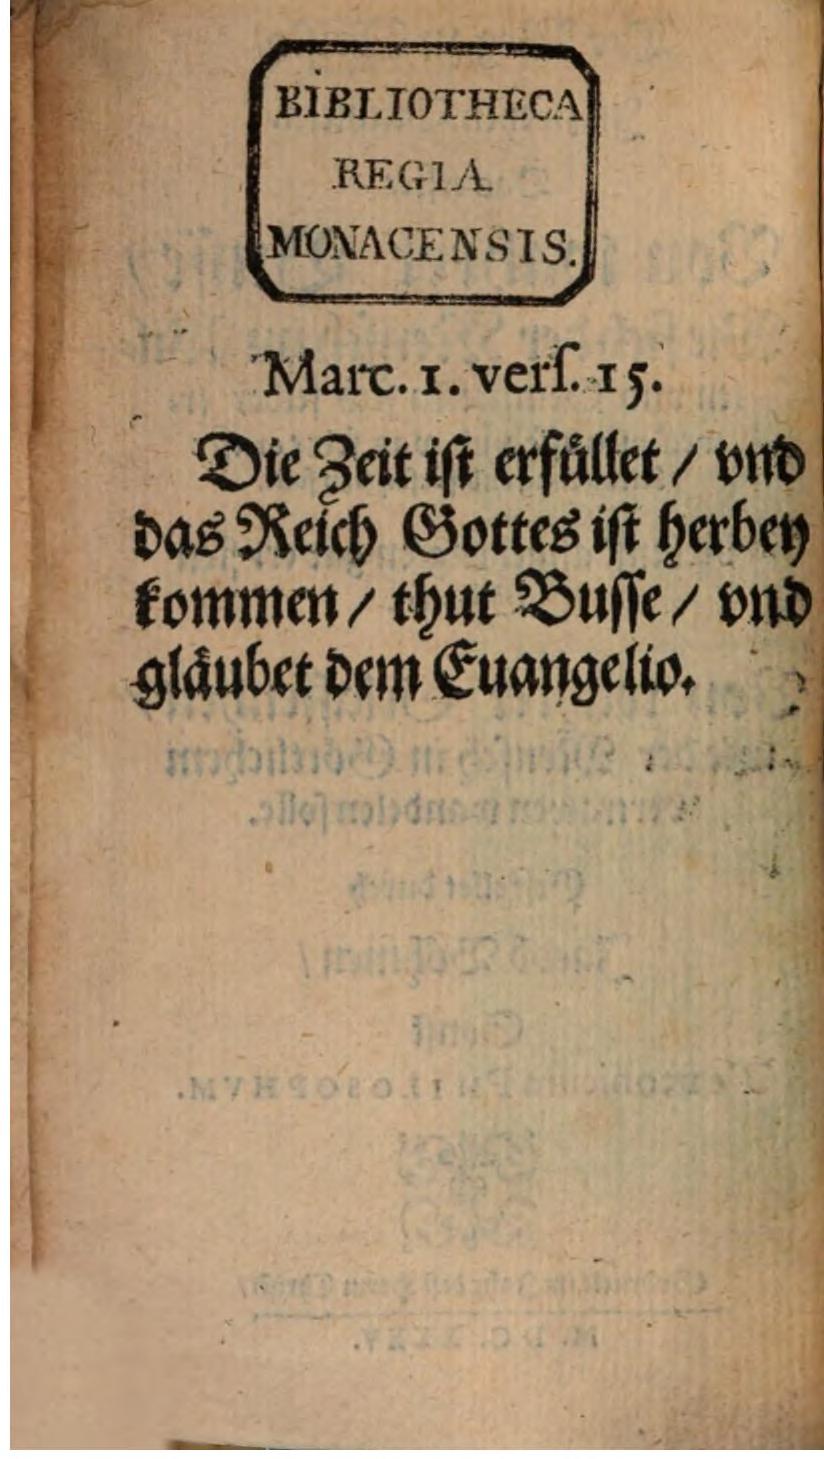 BIBLIOTHECA
REGIA
MONACENSIS.
Marc. 1. verſ. 15.
Die Zeit iſt erfüllet / vnd
das Reich Gottes iſt herbey
kommen / thut Buſſe / vnd
gläubet dem Euangelio.